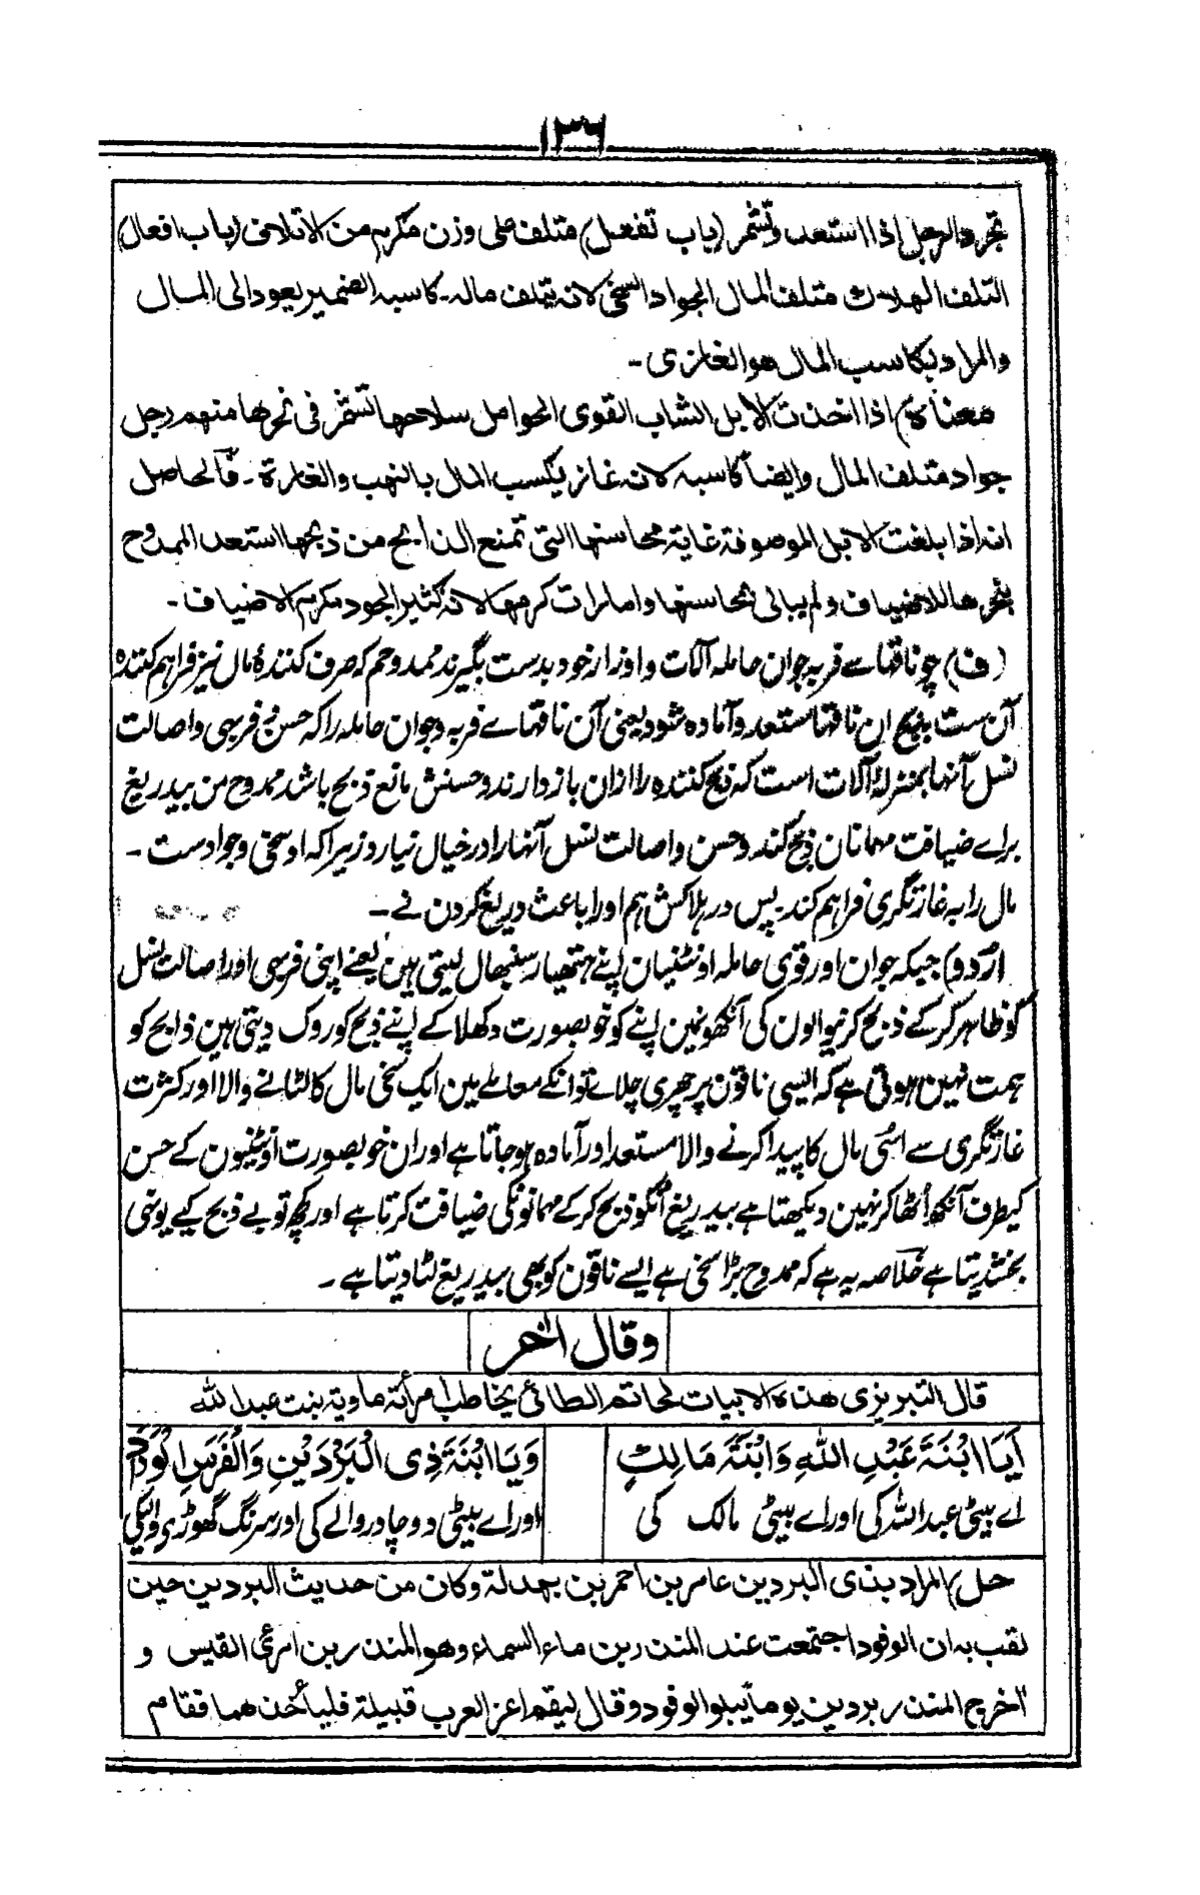 ١٣٦
تجرد الرجل اذا استعد وتشمر (باب تفعل) متلف على وزن مكرم من الاتلاف (باب افعال)
التلف الهلاك متلف المال الجواد السخى لانه يتلف ماله۔ كاسبه الضمير يعود الى المال
والمراد بكاسب المال هو الغازى۔
معناه) اذا اخذت الابل الشاب القوى الحوامل سلاحها تشمر فى نحرها منهم رجل
جواد متلف المال وايضاً كاسبه لانه غاز يكسب المال بالنهب والغارة۔ فالحاصل
انه اذا بلغت الابل الموصوفة غاية محاسنها التى تمنع الذابح من ذبحها استعد الممدوح
بنحرها للاضياف ولم يبالى بمحاسنها وامارات كرمها لانه كثير الجود مكرم الاضياف۔
(ف) چو ناقہاے فربہ جوان حاملہ آلات و اوزار خود بدست بگیرند ممدوحم کہ صرف کنندۂ مال نیز فراہم کنندہ
آن ست بذبح ان ناقہا مستعد و آمادہ شود یعنی آن ناقہاے فربہ و جوان حاملہ را کہ حسن و فربہی و اصالت
نسل آنہا بمنزلۂ آلات است کہ ذبح کنندہ را ازان باز دارند و حسنش مانع ذبح باشد ممدوح من بیدریغ
براے ضیافت مہمانان ذبح کند و حسن و اصالت نسل آنہا را در خیال نیارد زیرا کہ او سخی و جواد ست۔
مال را بہ غارتگری فراہم کند پس در ہلاکش ہم او را باعث دریغ کردن نے۔
اردو) جبکہ جوان اور قوی حاملہ اونٹنیان اپنے ہتھیار سنبھال لیتی ہین یعنے اپنی فربہی اور اصالت نسل
کو ظاہر کرکے ذبح کرنیوالون کی آنکھونمین اپنے کو خوبصورت دکھلا کے اپنے ذبح کو روک دیتی ہین ذابح کو
ہمت نہین ہوتی ہے کہ ایسی ناقون پر چھری چلاے تو انکے معاملے مین ایک سخی مال کا لٹانے والا اور کثرت
غارتگری سے اسی مال کا پیدا کرنے والا مستعد اور آمادہ ہو جاتا ہے اور ان خوبصورت اونٹنیون کے حسن
کیطرف آنکھ اُٹھا کر نہین دیکھتا ہے بیدریغ اُنکو ذبح کرکے مہمانونکی ضیافت کرتا ہے اور کچھ تو بے ذبح کیے یونہی
بخشدیتا ہے خلاصہ یہ ہے کہ ممدوح بڑا سخی ہے ایسے ناقون کو بھی بیدریغ لٹا دیتا ہے۔
وقال اٰخر
قال التبريزى هذه الابيات لحاتم الطائى يخاطب امرأته ماوية بنت عبد الله
اَيَا ابْنَةَ عَبْدِ اللّٰهِ وَابْنَةَ مَالِكٍ    وَيَا ابْنَةَ ذِى الْبَرْدَيْنِ وَالْفَرَسِ الْوَرْدِ
اے بیٹی عبد اللہ کی اور اے بیٹی مالک کی    اور اے بیٹی دو چادر والے کی اور سرنگ گھوڑے والیکی
حل) المراد بذى البردين عامر بن احمر بن بهدلة وكان من حديث البردين حين
لقب به ان الوفود اجتمعت عند المنذر بن ماء السماء وهو المنذر بن امرئ القيس و
اخرج المنذر بردين يوماً يبلو الوفود وقال ليقم اعز العرب قبيلة فليأخذهما فقام